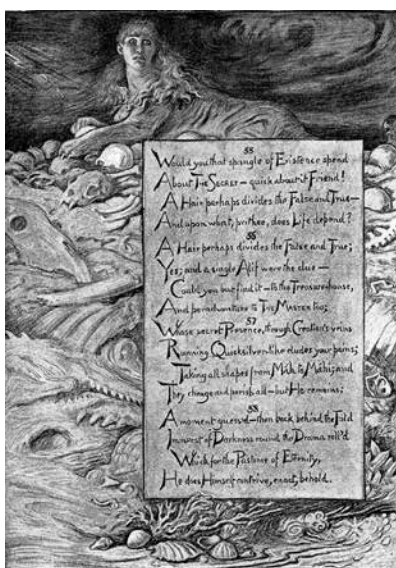 55
Would you that spangle of Existence spend
About THE SECRET – quick about it Friend!
A Hair perhaps divides the False and True –
And upon what, prithee, does Life depend?
56
A Hair perhaps divides the False and True;
Yes; and a single Alif were the clue –
Could you but find it – to the Treasure-house,
And peradventure to THE MASTER too;
57
Whose secret Presence, through Creation's veins
Running Quicksilver-like eludes your pains;
Taking all shapes from Máh to Máhi; and
They change and perish all – but He remains;
58
A moment guess'd – then back behind the Fold
Immerst of Darkness round the Drama roll'd
Which for the Pastime of Eternity,
He does Himself contrive, enact, behold.